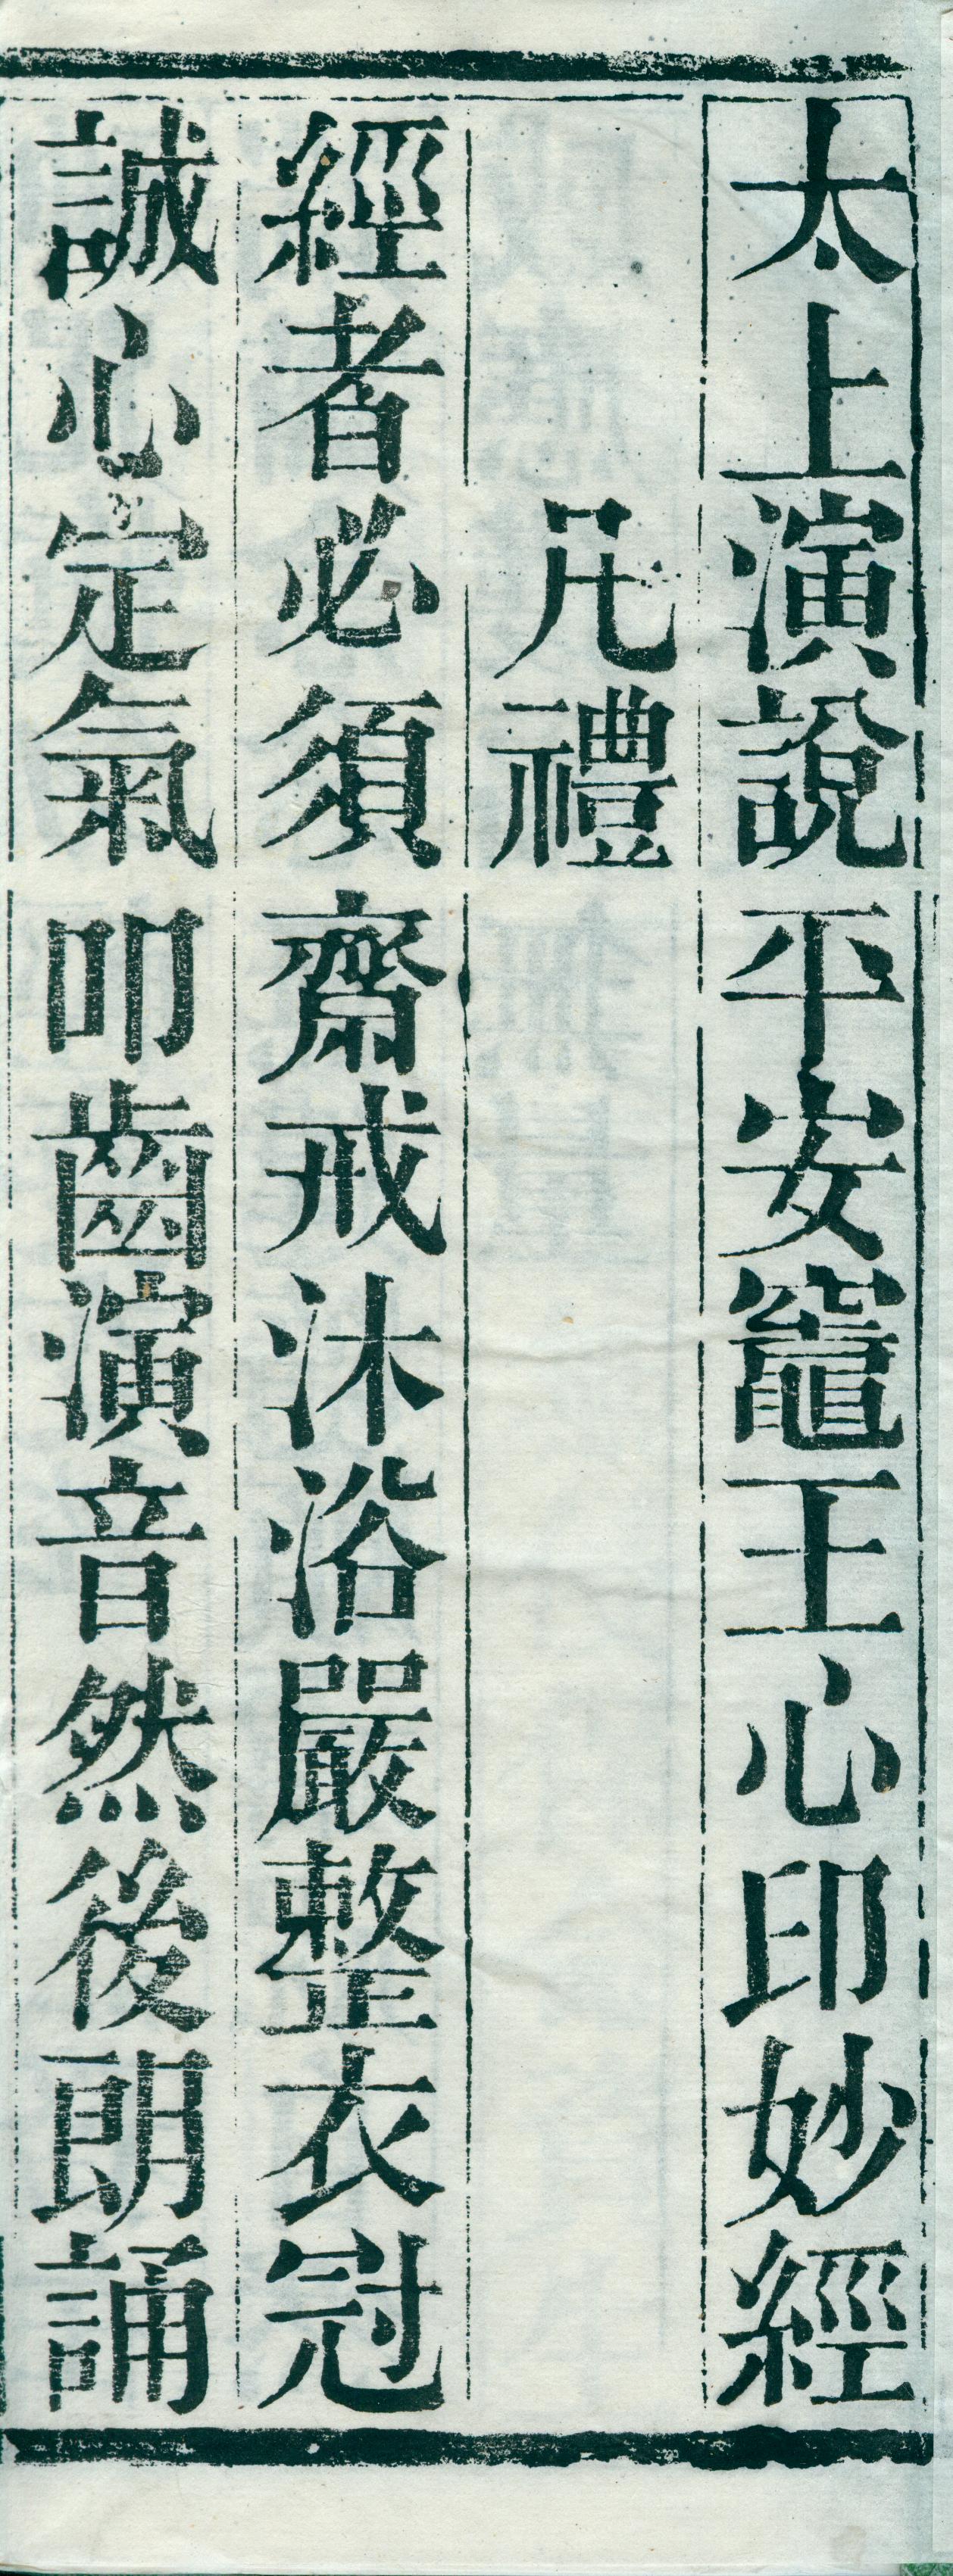 太上演說平安竈王心印妙經
凡禮
經者必須齋戒沐浴嚴整衣冠
誠心定氣叩齒演音然後朗誦